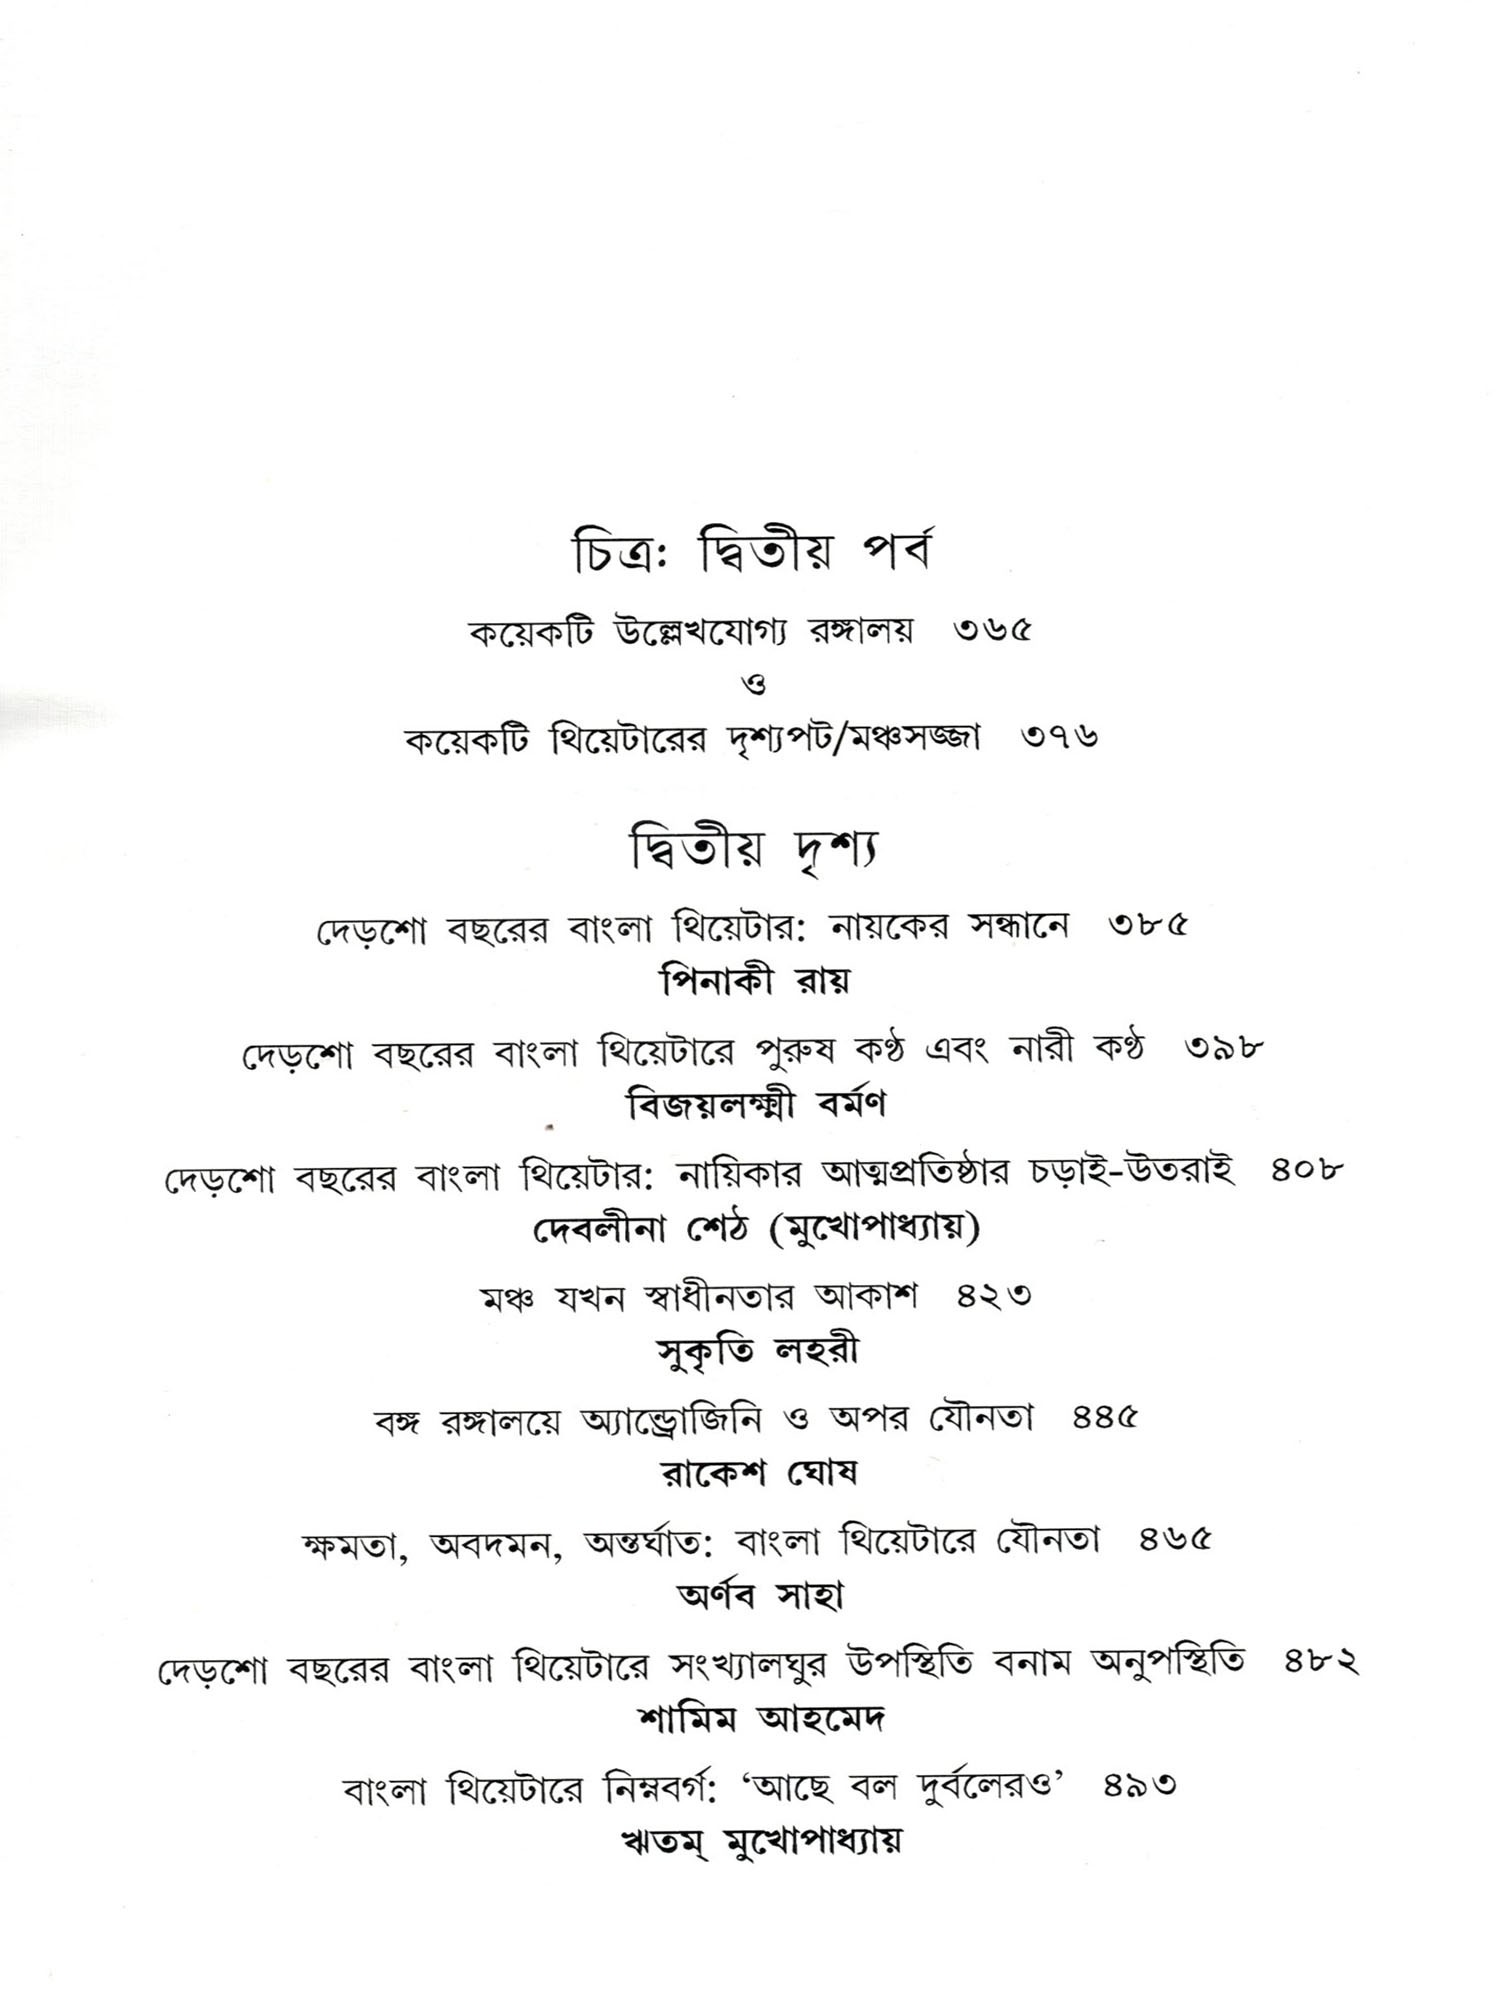 চিত্র: দ্বিতীয় পর্ব
কয়েকটি উল্লেখযোগ্য রঙ্গালয় ৩৬৫
ও
কয়েকটি থিয়েটারের দৃশ্যপট/মঞ্চসজ্জা ৩৭৬
দ্বিতীয় দৃশ্য
দেড়শো বছরের বাংলা থিয়েটার: নায়কের সন্ধানে ৩৮৫
পিনাকী রায়
দেড়শো বছরের বাংলা থিয়েটারে পুরুষ কণ্ঠ এবং নারী কণ্ঠ ৩৯৮
বিজয়লক্ষ্মী বর্মণ
দেড়শো বছরের বাংলা থিয়েটার: নায়িকার আত্মপ্রতিষ্ঠার চড়াই-উতরাই ৪০৮
দেবলীনা শেঠ (মুখোপাধ্যায়)
মঞ্চ যখন স্বাধীনতার আকাশ ৪২৩
সুকৃতি লহরী
বঙ্গ রঙ্গালয়ে অ্যান্ড্রোজিনি ও অপর যৌনতা ৪৪৫
রাকেশ ঘোষ
ক্ষমতা, অবদমন, অন্তর্ঘাত: বাংলা থিয়েটারে যৌনতা ৪৬৫
অর্ণব সাহা
দেড়শো বছরের বাংলা থিয়েটারে সংখ্যালঘুর উপস্থিতি বনাম অনুপস্থিতি ৪৮২
শামিম আহমেদ
বাংলা থিয়েটারে নিম্নবর্গ: ‘আছে বল দুর্বলেরও’ ৪৯৩
ঋতম্ মুখোপাধ্যায়